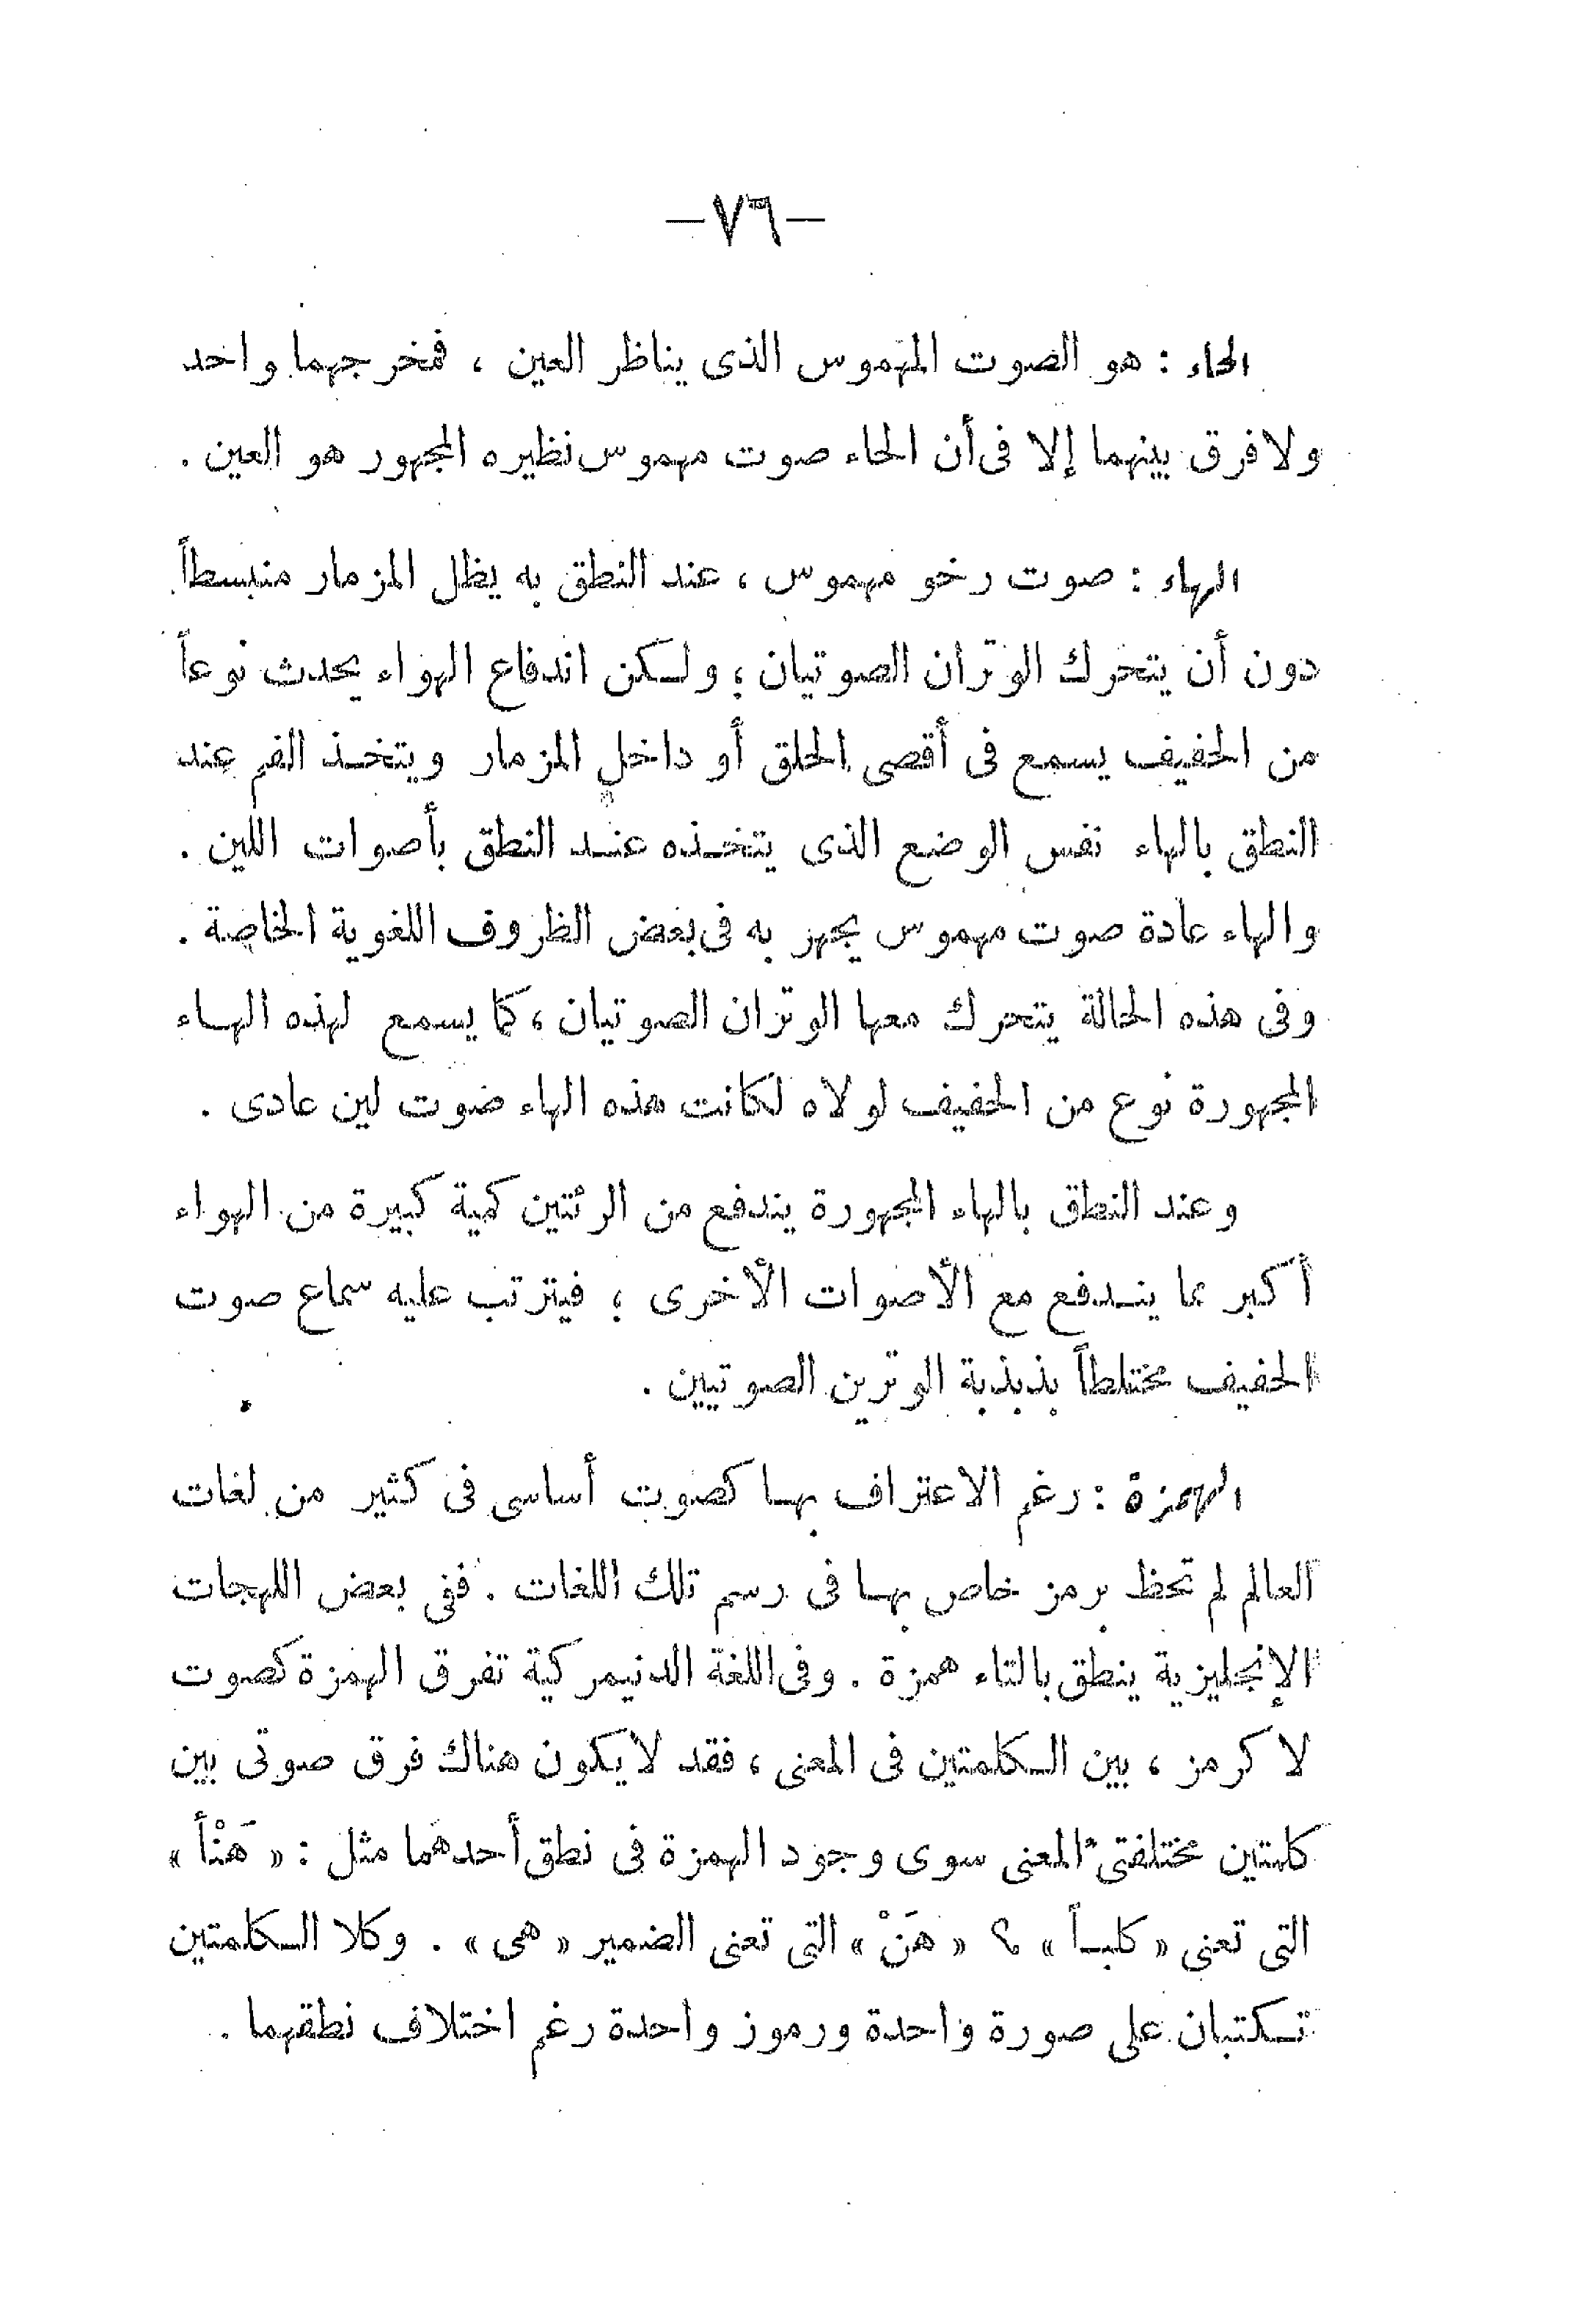 —٧٦—
الحاء : هو الصوت المهموس الذى يناظر العين ، فمخرجهما واحد
ولا فرق بينهما إلا فى أن الحاء صوت مهموس نظيره المجهور هو العين .
الهاء : صوت رخو مهموس ، عند النطق به يظل المزمار منبسطاً
دون أن يتحرك الوتران الصوتيان ؛ ولكن اندفاع الهواء يحدث نوعاً
من الحفيف يسمع فى أقصى الحلق أو داخل المزمار ويتخذ الفم عند
النطق بالهاء نفس الوضع الذى يتخذه عند النطق بأصوات اللين .
والهاء عادة صوت مهموس يجهر به فى بعض الظروف اللغوية الخاصة .
وفى هذه الحالة يتحرك معها الوتران الصوتيان ، كما يسمع لهذه الهاء
المجهورة نوع من الحفيف لولاه لكانت هذه الهاء صوت لين عادى .
وعند النطق بالهاء المجهورة يندفع من الرئتين كمية كبيرة من الهواء
أكبر مما يندفع مع الأصوات الأخرى ؛ فيترتب عليه سماع صوت
الحفيف مختلطاً بذبذبة الوترين الصوتيين .
الهمزة : رغم الاعتراف بها كصوت أساسى فى كثير من لغات
العالم لم تحظ برمز خاص بها فى رسم تلك اللغات . ففى بعض اللهجات
الإنجليزية ينطق بالتاء همزة . وفى اللغة الدنيمركية تفرق الهمزة كصوت
لا كرمز ، بين الكلمتين فى المعنى ، فقد لا يكون هناك فرق صوتى بين
كلمتين مختلفتى المعنى سوى وجود الهمزة فى نطق أحدهما مثل : « هَنْأ »
التى تعنى « كلباً » ؟ « هَنْ » التى تعنى الضمير « هى » . وكلا الكلمتين
تكتبان على صورة واحدة ورموز واحدة رغم اختلاف نطقهما .